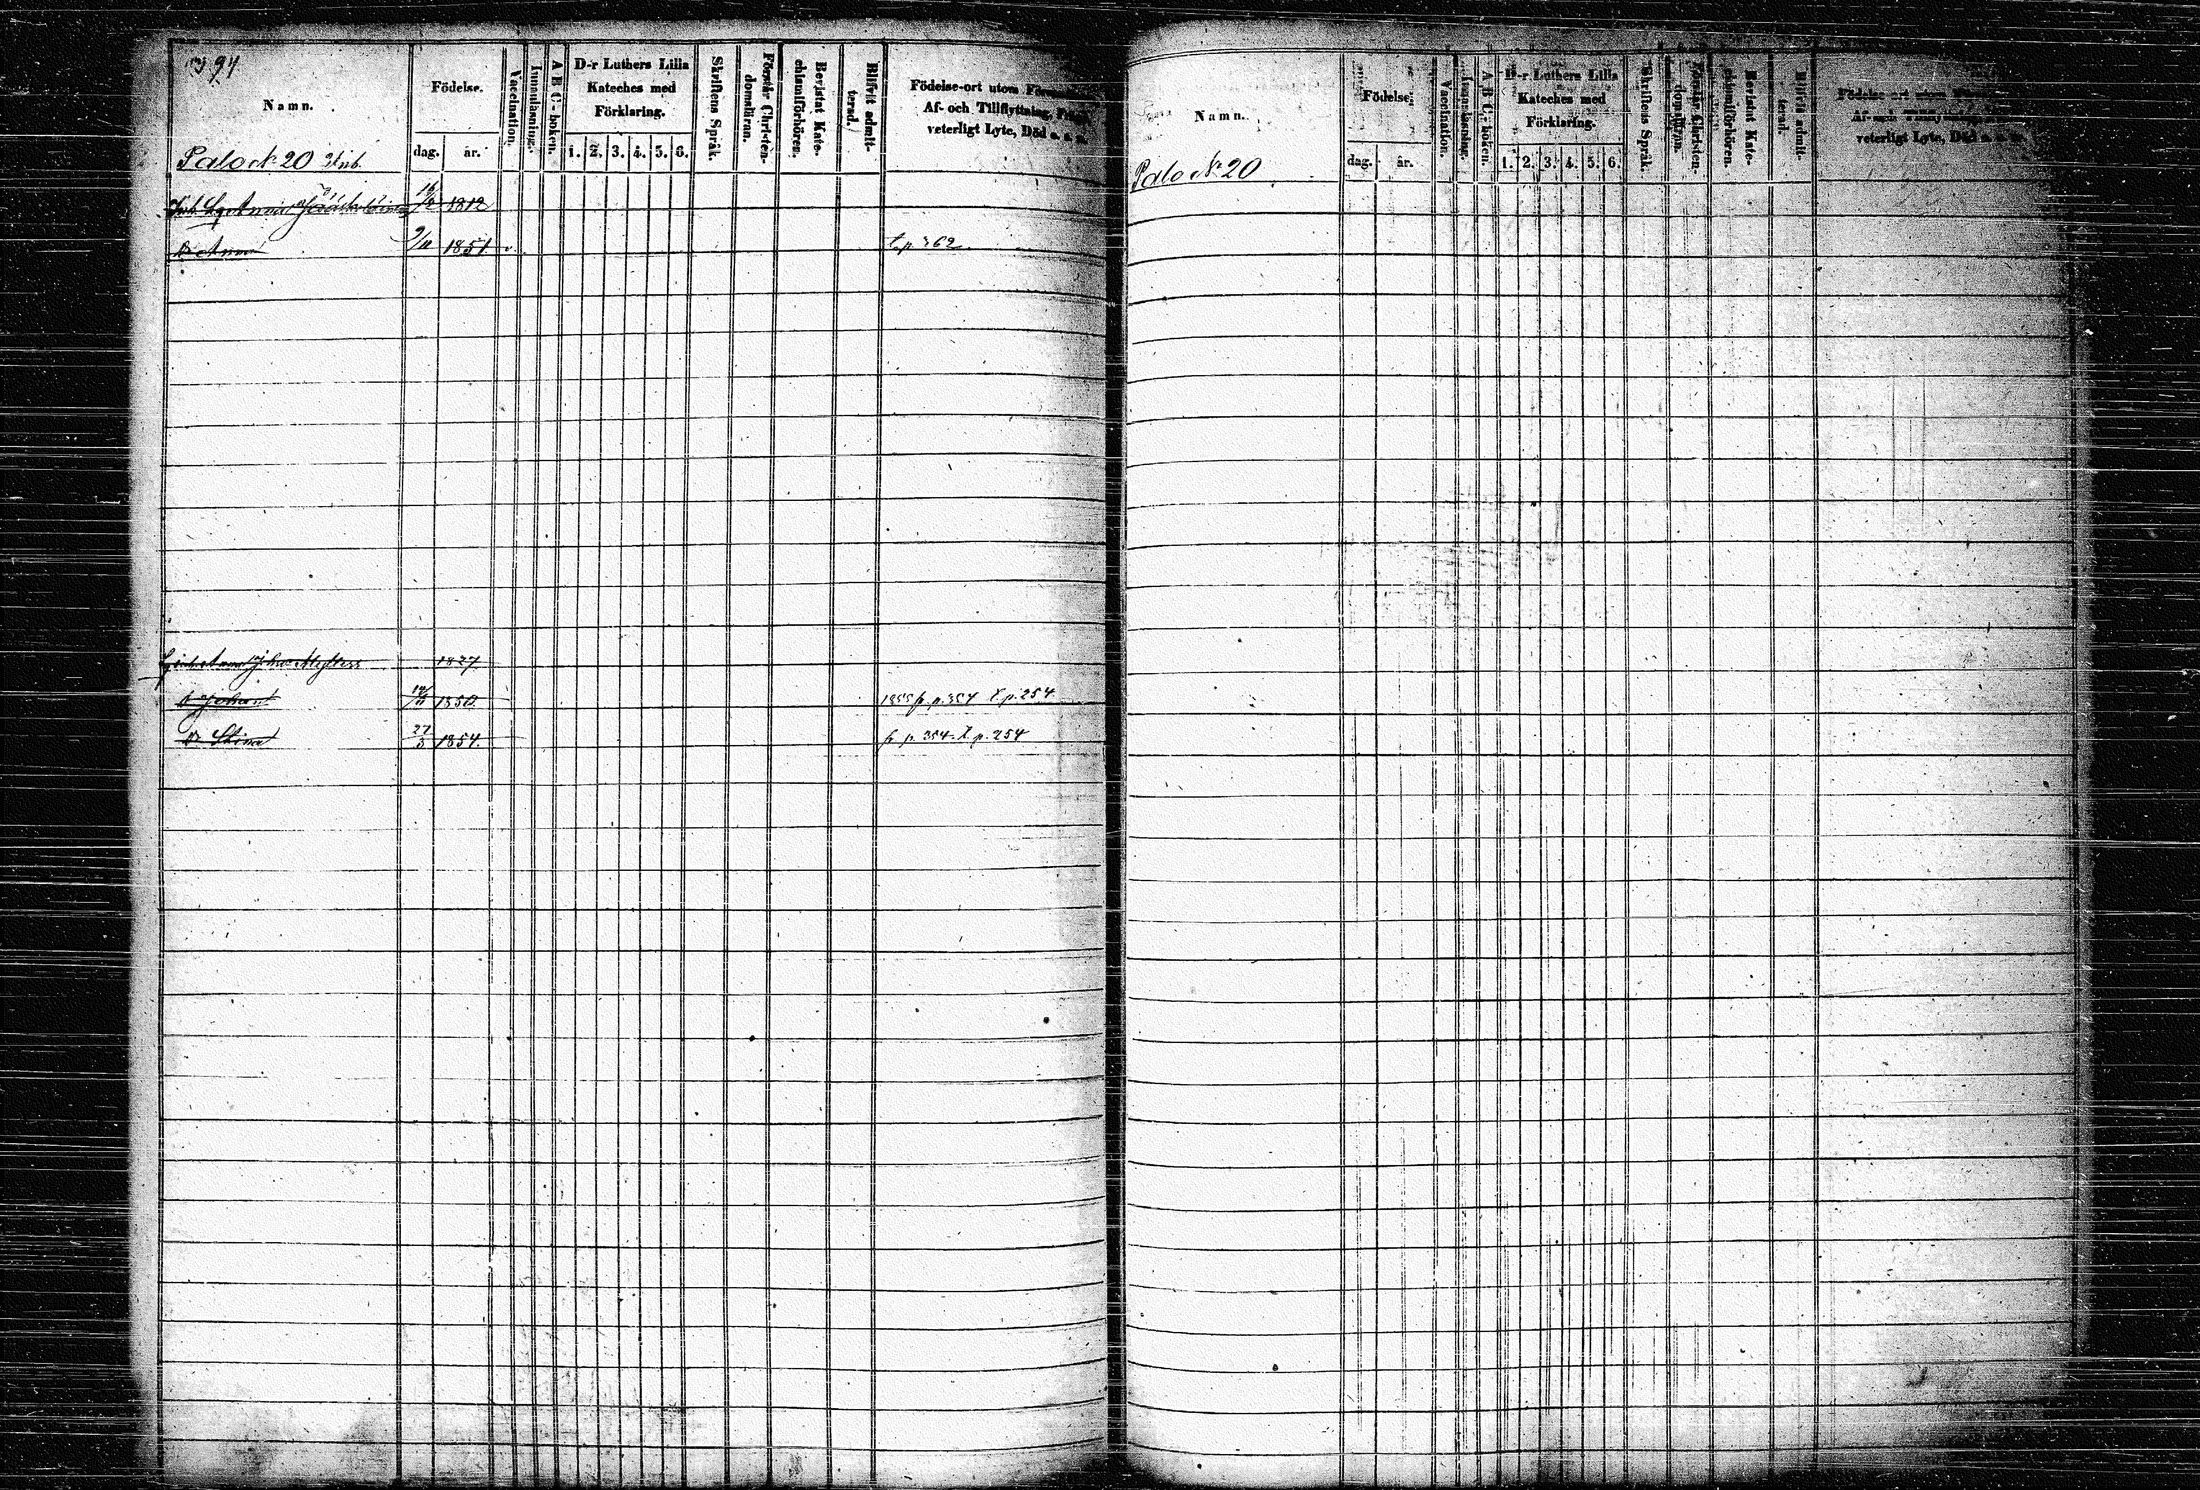 394
Namn.
Födelse.
dag.
år.
Vaccination.
Innanläsning.
A B C-boken.
D-r Luthers Lilla
Kateches med
Förklaring.
1. 2. 3. 4. 5. 6.
Skriftens Språk.
Förstår Christen-
domsläran.
Bevistat Kate-
chismiförhören.
Blifvit admit-
terad.
Födelse-ort utom
Af- och Tillflyttning,
veterligt Lyte, Död o. s. v.
Palo № 20
Anna 16 1812
Dr Anna 9/11 1851 v. t. p. 362.
Anna 1827
Johan 1850 1855 fr. p. 354 t. p. 254.
Dr Stina 27/3 1854. fr p. 354. t. p. 254
Namn.
Födelse.
dag.
år.
Vaccination.
Innanläsning.
A B C-boken.
D-r Luthers Lilla
Kateches med
Förklaring.
1. 2. 3. 4. 5. 6.
Skriftens Språk.
Förstår Christen-
domsläran.
Bevistat Kate-
chismiförhören.
Blifvit admit-
terad.
Födelse-ort utom
Af- och
veterligt Lyte, Död o. s. v.
Palo № 20